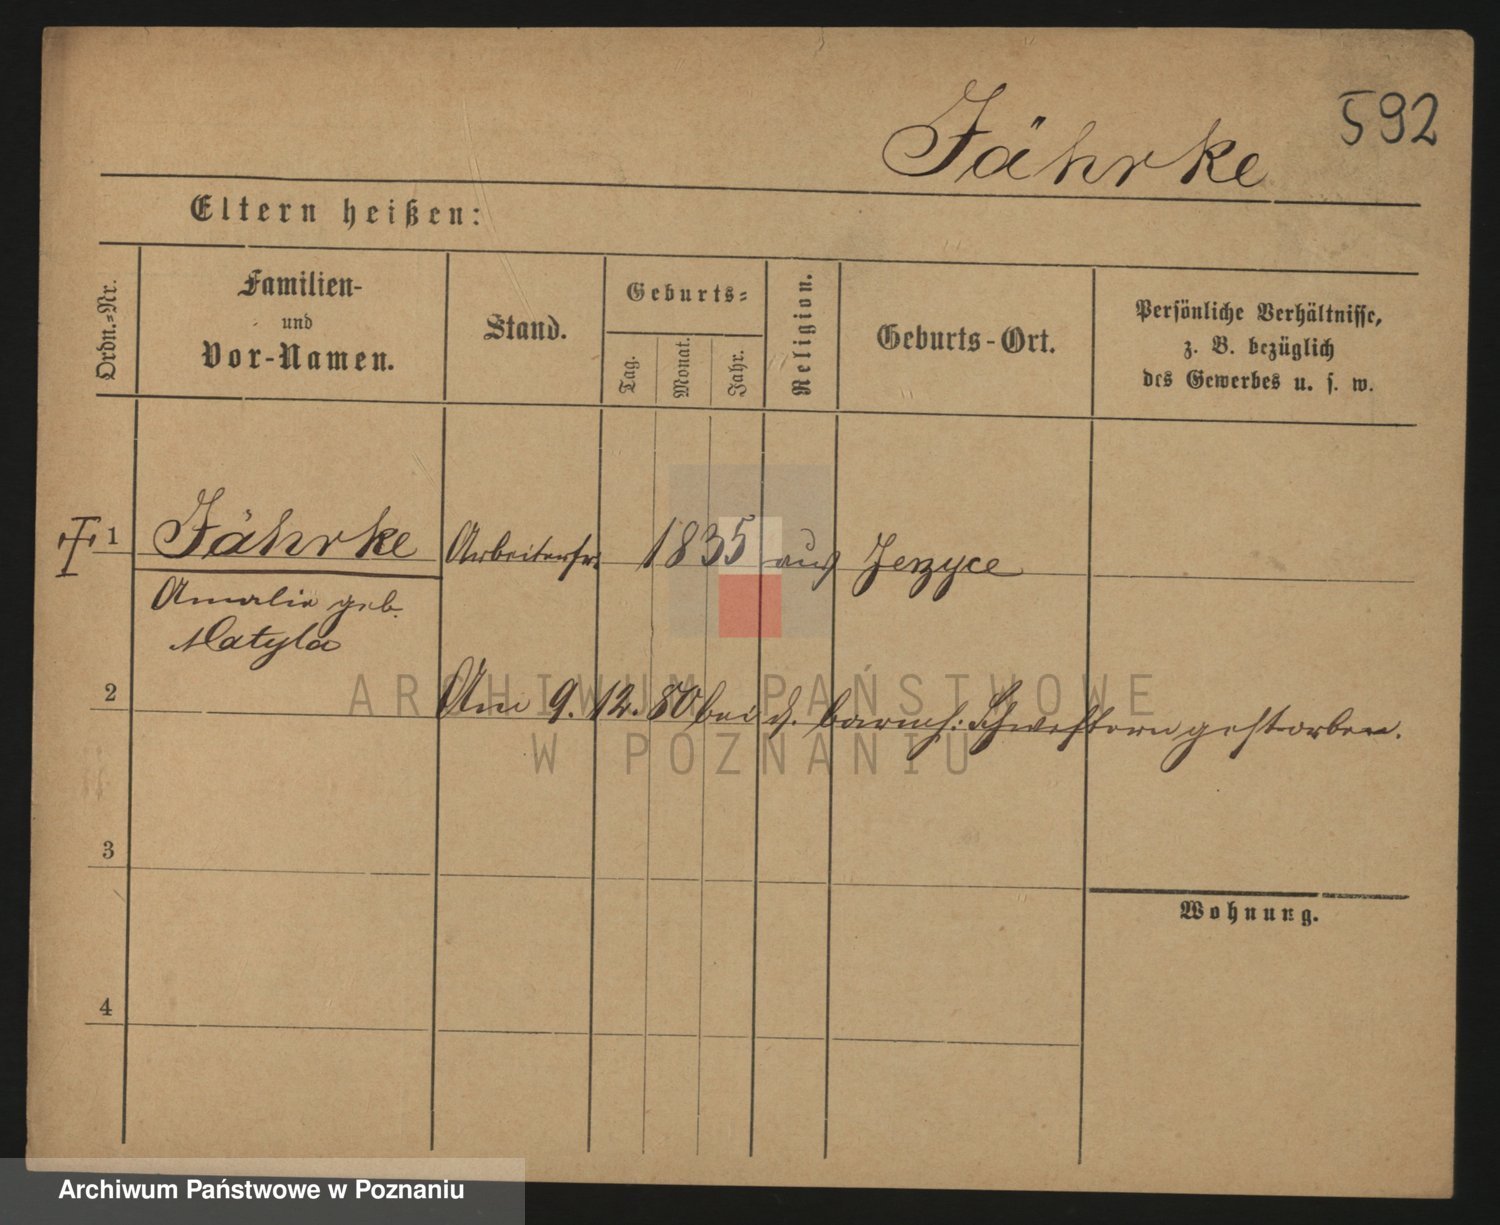 592
Jährke
Eltern heißen:
Ordn.-Nr.
Familien-
und
Vor-Namen.
Stand.
Geburts-
Tag.
Monat.
Jahr.
Religion.
Geburts-Ort.
Persönliche Verhältnisse,
z. B. bezüglich
des Gewerbes u. s. w.
1 Jährke Arbeiterfr. 1835 aus Jerzyce
Amalie geb.
Matyla
2 Am 9. 12. 80 bei d. barmh: Schwestern gestorben.
3
Wohnung.
4
ARCHIWUM PAŃSTWOWE
W POZNANIU
Archiwum Państwowe w Poznaniu